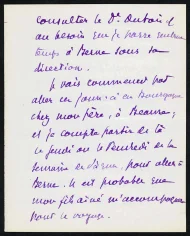 consulter le Dr Dubois, &
au besoin que je passe quelque
temps à Berne sous sa
direction.
Je vais commencer par
aller ces jours-ci en Bourgogne
chez mon frère, à Beaune;
et je compte partir de là
le jeudi ou le Vendredi de la
semaine prochaine, pour aller à
Berne. Il est probable que
mon fils aîné m'accompagnera
pour le voyage.